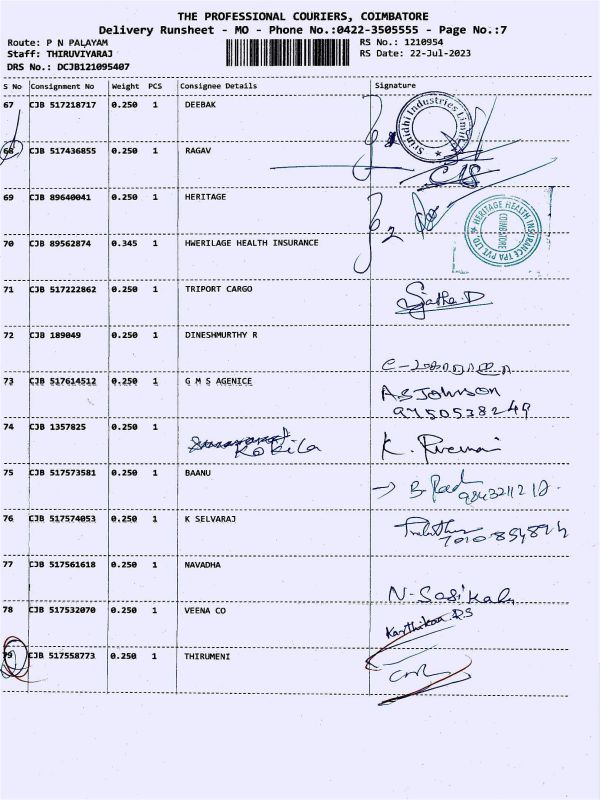 THE PROFESSIONAL COURIERS, COIMBATORE
Delivery Runsheet - MO - Phone No.:0422-3505555 - Page No.:7
Route: P N PALAYAM RS No.: 1210954
Staff: THIRUVIYARAJ RS Date: 22-Jul-2023
DRS No.: DCJB121095407
S No Consignment No Weight PCS Consignee Details Signature
67 CJB 517218717 0.250 1 DEEBAK
Srinidhi Industries
68 CJB 517436855 0.250 1 RAGAV
69 CJB 89640041 0.250 1 HERITAGE
HERITAGE HEALTH INSURANCE TPA PVT. LTD.
COIMBATORE
70 CJB 89562874 0.345 1 HWERILAGE HEALTH INSURANCE
71 CJB 517222862 0.250 1 TRIPORT CARGO
72 CJB 189049 0.250 1 DINESHMURTHY R
73 CJB 517614512 0.250 1 G M S AGENICE
A.S Johnson
9750538249
74 CJB 1357825 0.250 1
Kokila
75 CJB 517573581 0.250 1 BAANU
76 CJB 517574053 0.250 1 K SELVARAJ
77 CJB 517561618 0.250 1 NAVADHA
N. Sasikala
78 CJB 517532070 0.250 1 VEENA CO
Karthikaa R.S
79 CJB 517558773 0.250 1 THIRUMENI